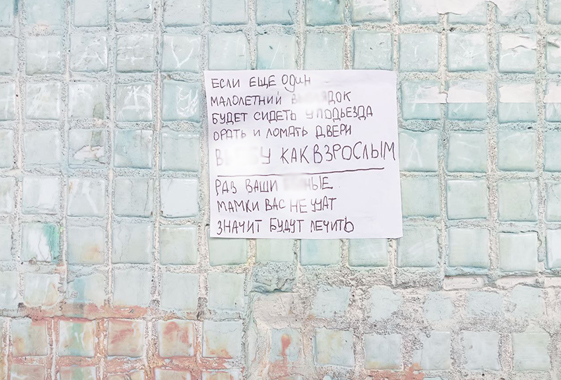 ЕСЛИ ЕЩЕ ОДИН
МАЛОЛЕТНИЙ
БУДЕТ СИДЕТЬ У ПОДЬЕЗДА
ОРАТЬ И ЛОМАТЬ ДВЕРИ
КАК ВЗРОСЛЫМ
РАВ ВАШИ
МАМКИ ВАС НЕ УЧАТ
ЗНАЧИТ БУДУТ ЛЕЧИТЬ